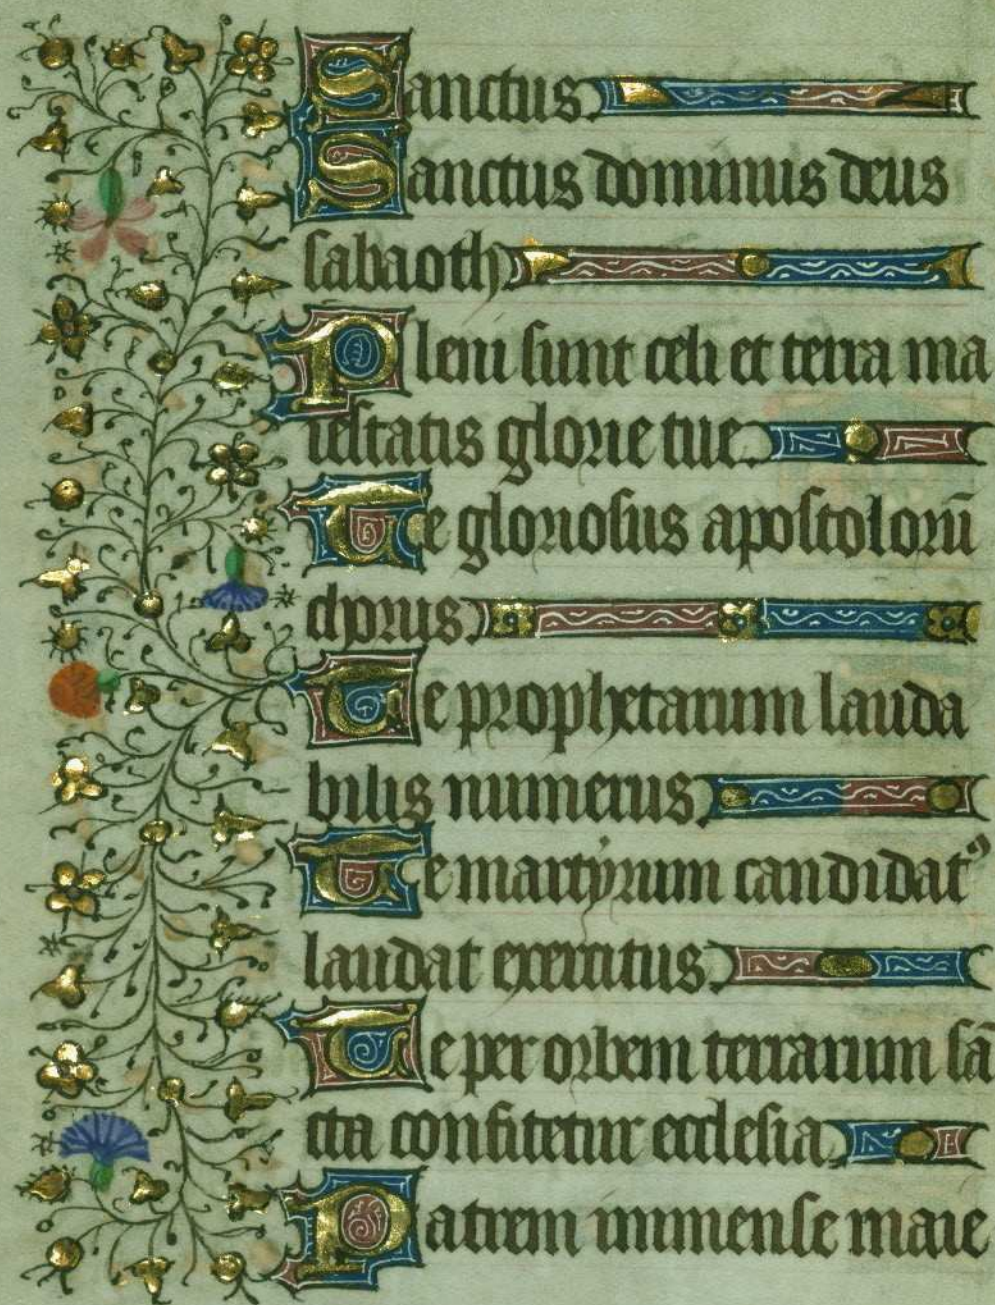 Sanctus
Sanctus dominus deus
sabaoth
Pleni sunt celi et terra ma
iestatis glorie tue
Te gloriosus apostolorū
chorus
Te prophetarum lauda
bilis numerus
Te martyrum candidatꝰ
laudat exercitus
Te per orbem terrarum sā
cta confitetur ecclesia
Patrem immense maie